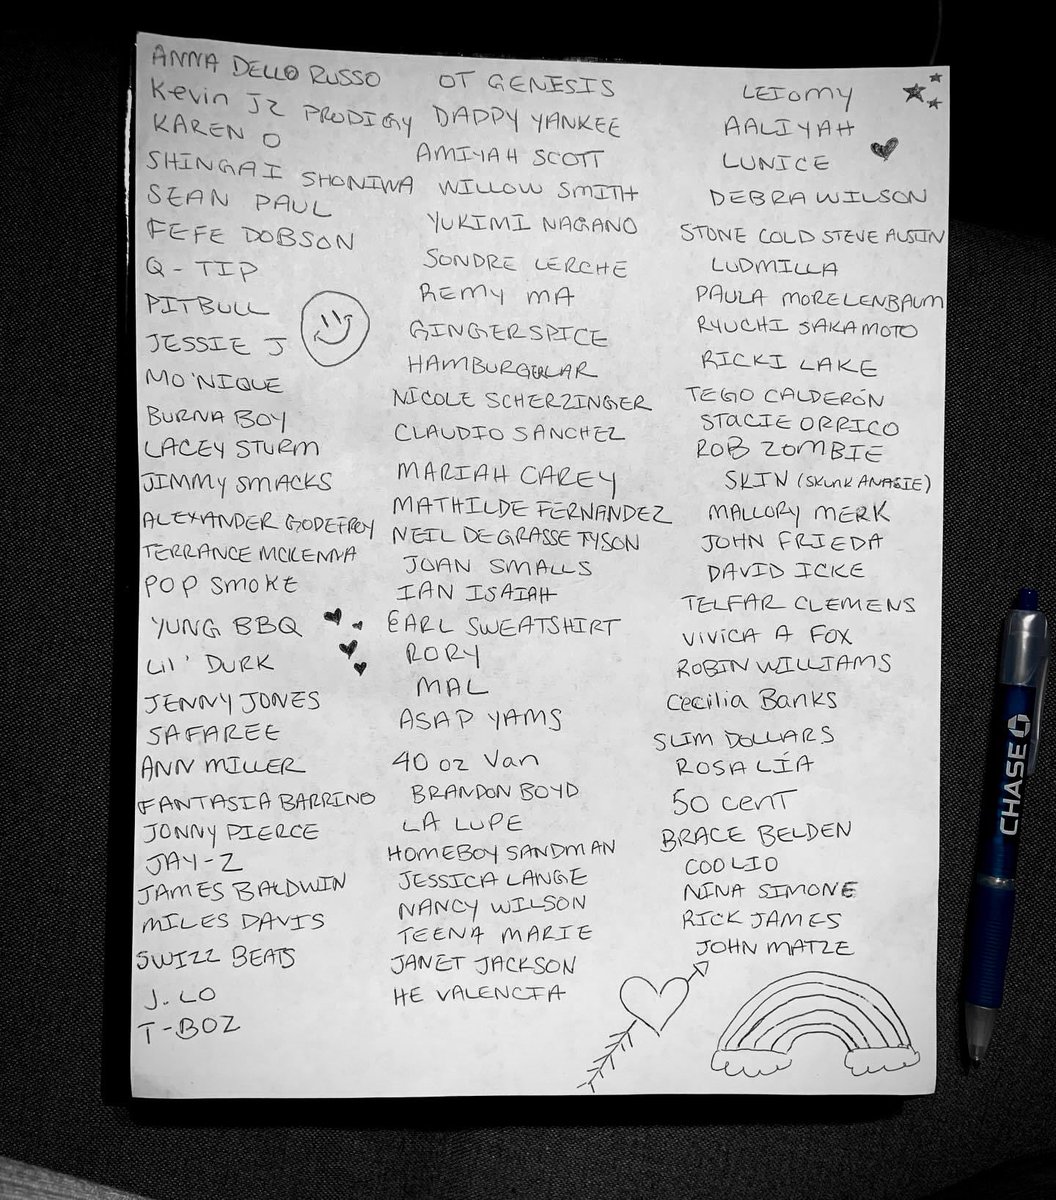 ANNA DELLO RUSSO
Kevin JZ PRODIGY
KAREN O
SHINGAI SHONIWA
SEAN PAUL
FEFE DOBSON
Q-TIP
PITBULL
JESSIE J
MO'NIQUE
BURNA BOY
LACEY STURM
JIMMY SMACKS
ALEXANDER GODEFROY
TERRANCE MCKENNA
POP SMOKE
YUNG BBQ
LIL' DURK
JENNY JONES
SAFAREE
ANN MILLER
FANTASIA BARRINO
JONNY PIERCE
JAY-Z
JAMES BALDWIN
MILES DAVIS
SWIZZ BEATS
J. LO
T-BOZ
OT GENESIS
DADDY YANKEE
AMIYAH SCOTT
WILLOW SMITH
YUKIMI NAGANO
SONDRE LERCHE
REMY MA
GINGERSPICE
HAMBURGULAR
NICOLE SCHERZINGER
CLAUDIO SANCHEZ
MARIAH CAREY
MATHILDE FERNANDEZ
NEIL DEGRASSE TYSON
JOAN SMALLS
IAN ISAIAH
EARL SWEATSHIRT
RORY
MAL
ASAP YAMS
40 oz Van
BRANDON BOYD
LA LUPE
HOMEBOY SANDMAN
JESSICA LANGE
NANCY WILSON
TEENA MARIE
JANET JACKSON
HE VALENCIA
LEIOMY
AALIYAH
LUNICE
DEBRA WILSON
STONE COLD STEVE AUSTIN
LUDMILLA
PAULA MORELENBAUM
RYUCHI SAKAMOTO
RICKI LAKE
TEGO CALDERÓN
STACIE ORRICO
ROB ZOMBIE
SKIN (SKUNK ANASIE)
MALLORY MERK
JOHN FRIEDA
DAVID ICKE
TELFAR CLEMENS
VIVICA A FOX
ROBIN WILLIAMS
Cecilia Banks
SLIM DOLLARS
ROSALÍA
50 CENT
BRACE BELDEN
COOLIO
NINA SIMONE
RICK JAMES
JOHN MATZE
CHASE